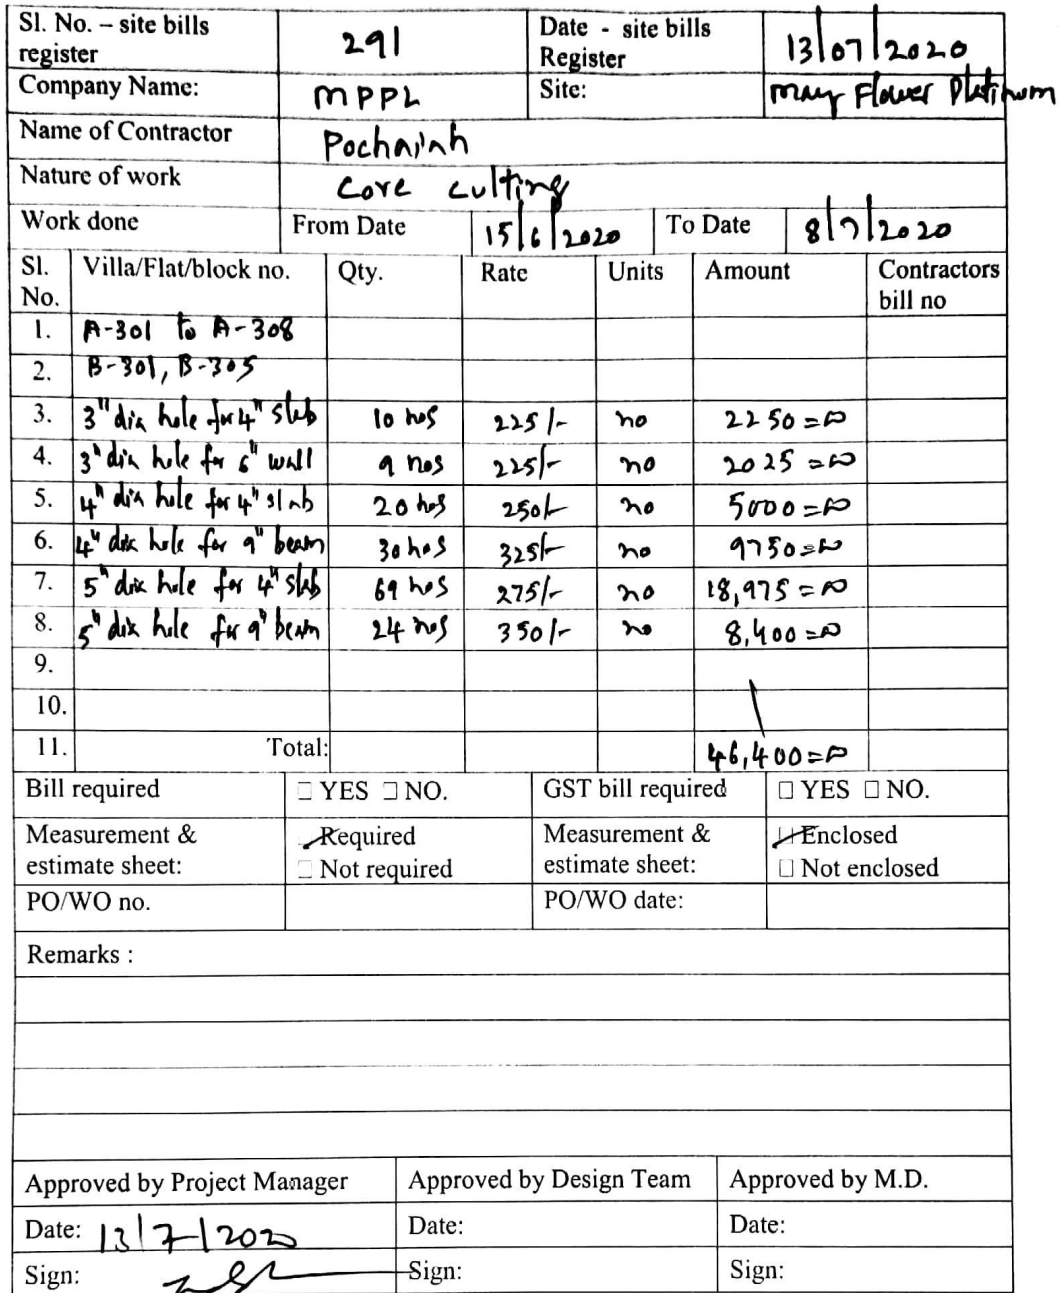 Sl. No. – site bills register 291 Date - site bills Register 13/07/2020
Company Name: MPPL Site: may Flower Platinum
Name of Contractor Pochaiah
Nature of work Core cutting
Work done From Date 15/6/2020 To Date 8/7/2020
Sl. No. Villa/Flat/block no. Qty. Rate Units Amount Contractors bill no
1. A-301 to A-308
2. B-301, B-305
3. 3" dia hole for 4" slab 10 nos 225/- no 2250=00
4. 3" dia hole for 6" wall 9 nos 225/- no 2025=00
5. 4" dia hole for 4" slab 20 nos 250/- no 5000=00
6. 4" dia hole for 9" beam 30 nos 325/- no 9750=00
7. 5" dia hole for 4" slab 69 nos 275/- no 18,975=00
8. 5" dia hole for 9" beam 24 nos 350/- no 8,400=00
9.
10.
11. Total: 46,400=00
Bill required □ YES □ NO. GST bill required □ YES □ NO.
Measurement & estimate sheet: Required Measurement & estimate sheet: Enclosed
□ Not required □ Not enclosed
PO/WO no. PO/WO date:
Remarks :
Approved by Project Manager Approved by Design Team Approved by M.D.
Date: 13/7/2020 Date: Date:
Sign: Sign: Sign: